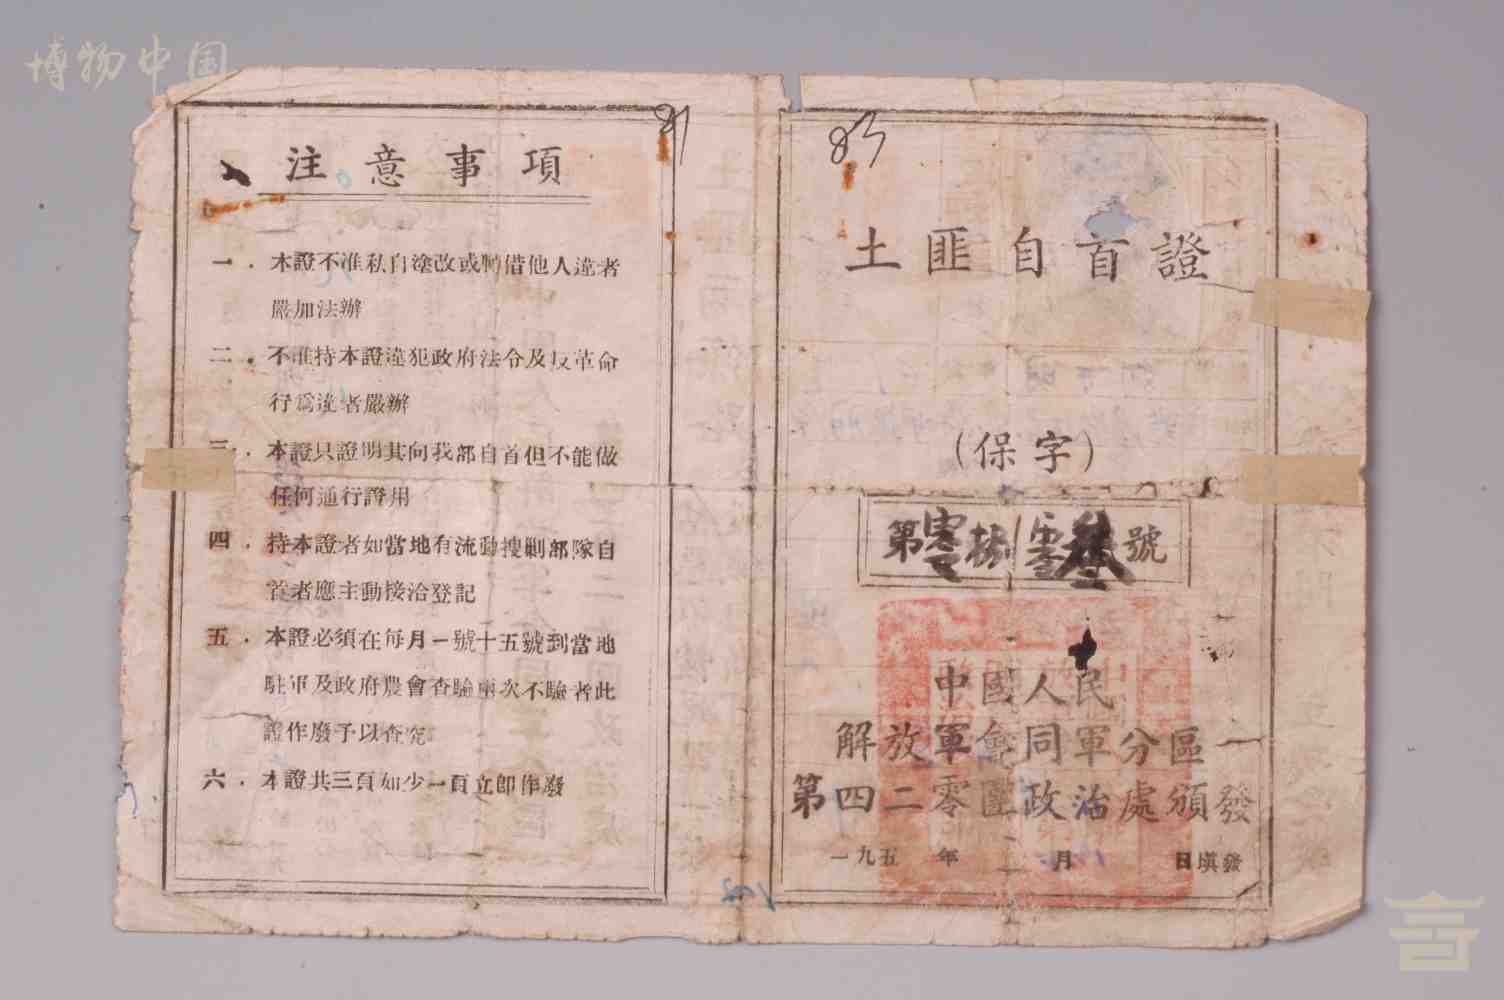 博物中国
注意事項
一．本證不准私自塗改或轉借他人違者
嚴加法辦
二．不准持本證違犯政府法令及反革命
行爲違者嚴辦
三．本證只證明其向我部自首但不能做
任何通行證用
四．持本證者如當地有流動搜剿部隊自
首者應主動接洽登記
五．本證必須在每月一號十五號到當地
駐軍及政府農會查驗兩次不驗者此
證作廢予以查究
六．本證共三頁如少一頁立即作廢
83
土匪自首證
(保字)
第零拾零叁號
中國人民
解放軍會同軍分區
第四二零團政治處頒發
一九五 年 月 日填發